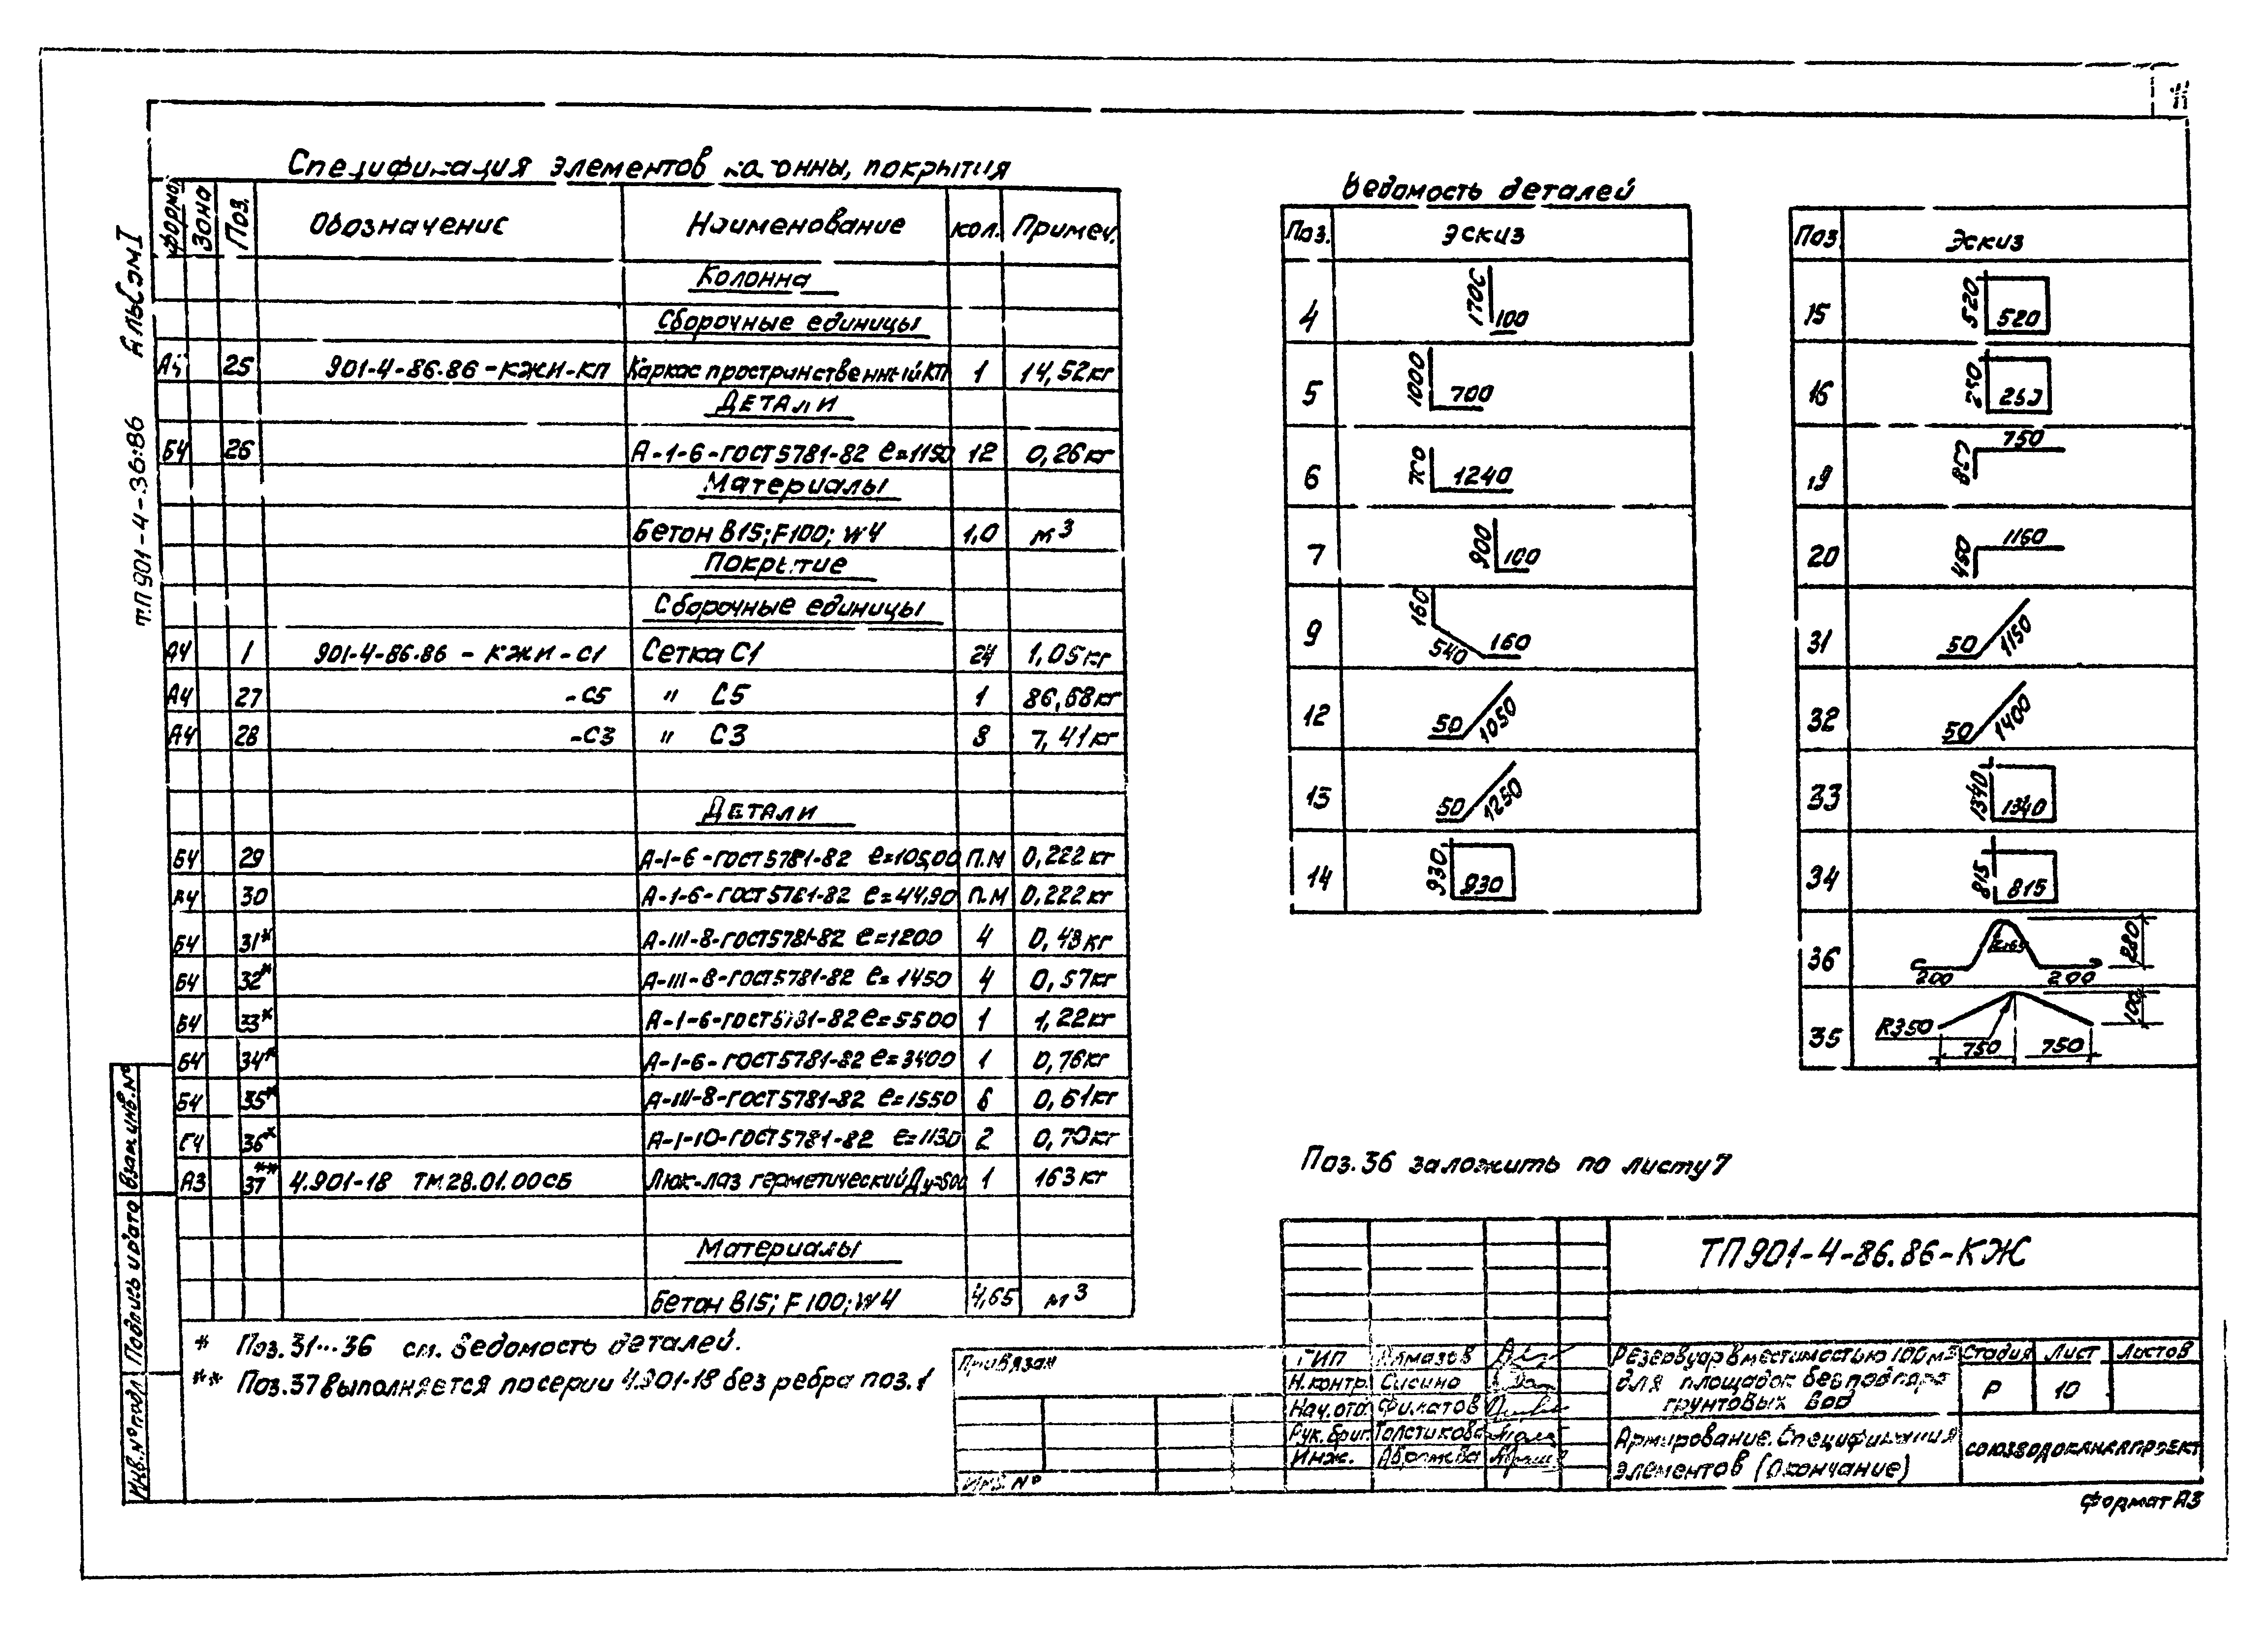 Спецификация элементов колонны, покрытия
Формат Зона Поз. Обозначение Наименование кол. Примеч.
Колонна
Сборочные единицы
А4 25 901-4-86.86-КЖИ-КП Каркас пространственный КП 1 14,52кг
Детали
БЧ 26 А-I-6-ГОСТ 5781-82 ℓ=1150 12 0,26кг
Материалы
Бетон В15; F100; W4 1,0 м³
Покрытие
Сборочные единицы
А4 1 901-4-86.86-КЖИ-С1 Сетка С1 24 1,05кг
А4 27 -С5 " С5 1 86,68кг
А4 28 -С3 " С3 8 7,41кг
Детали
БЧ 29 А-I-6-ГОСТ 5781-82 ℓ=105,00 П.М 0,222кг
БЧ 30 А-I-6-ГОСТ 5781-82 ℓ=44,90 П.М 0,222кг
БЧ 31* А-III-8-ГОСТ 5781-82 ℓ=1200 4 0,48кг
БЧ 32* А-III-8-ГОСТ 5781-82 ℓ=1450 4 0,57кг
БЧ 33* А-I-6-ГОСТ 5781-82 ℓ=5500 1 1,22кг
БЧ 34* А-I-6-ГОСТ 5781-82 ℓ=3400 1 0,76кг
БЧ 35* А-III-8-ГОСТ 5781-82 ℓ=1550 6 0,61кг
БЧ 36* А-I-10-ГОСТ 5781-82 ℓ=1130 2 0,70кг
А3 37** 4.901-18 ТМ28.01.00СБ Люк-лаз герметический Ду=500 1 163кг
Материалы
Бетон В15; F100; W4 4,65 м³
* Поз.31...36 см. Ведомость деталей.
** Поз.37 выполняется по серии 4.901-18 без ребра поз.1
Ведомость деталей
Поз. Эскиз
4 1700 100
5 1000 700
6 700 1240
7 900 100
9 160 540 160
12 50 1050
13 50 1250
14 930 930
Поз Эскиз
15 520 520
16 250 250
19 850 750
20 450 1160
31 50 1150
32 50 1400
33 1340 1340
34 815 815
36 200 200 280
35 R350 750 750 100
Поз.36 заложить по листу 7
ТП 901-4-86.86-КЖ
Привязан
Инв. №
ГИП Алмазов
Н.контр. Сисина
Нач.отд. Филатов
Рук.бриг. Толстикова
Инж. Абрамова
Резервуар вместимостью 100м3
для площадок без подпора
грунтовых вод
Стадия Лист Листов
Р 10
Армирование. Спецификация
элементов (Окончание)
СОЮЗВОДОКАНАЛПРОЕКТ
Формат А3
т.п 901-4-86.86 Альбом I
Инв.№подл Подпись и дата Взам.инв.№